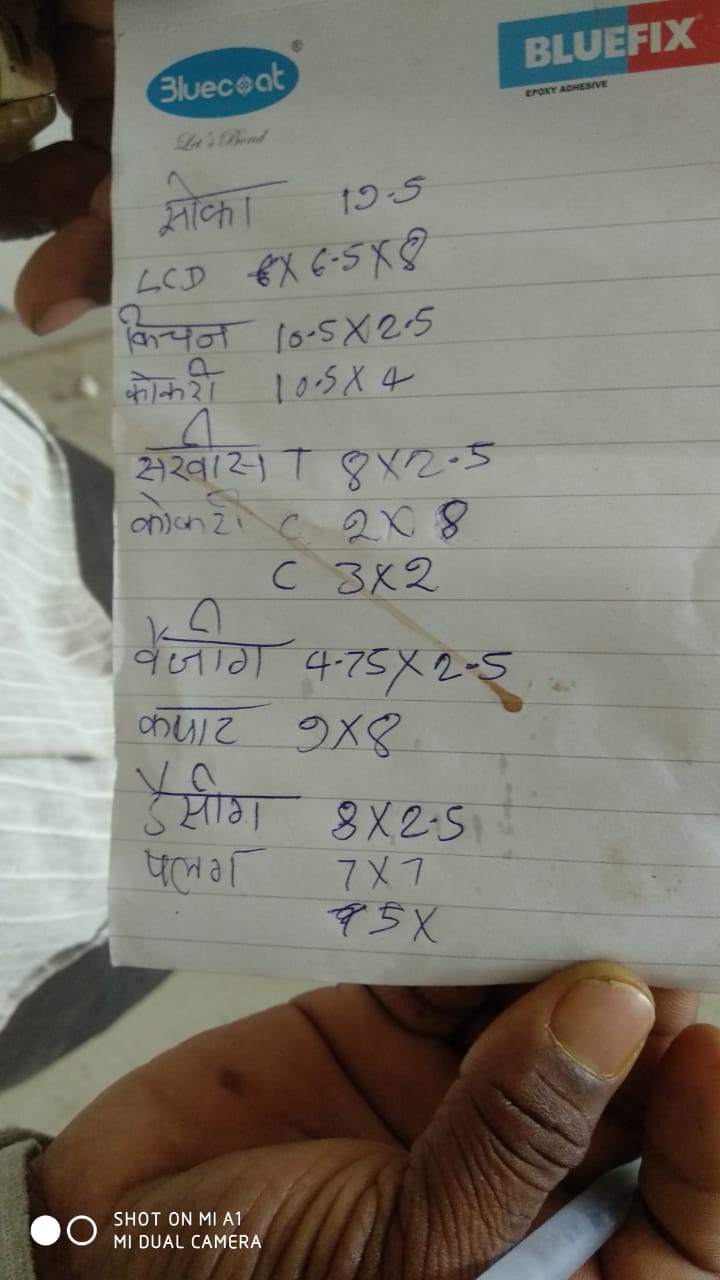 Bluecoat ®
Let's Bond
BLUEFIX
EPOXY ADHESIVE
सोका 19.5
LCD 6X 6.5X8
किचन 10.5X2.5
कोकरी 10.5X4
T 8X2.5
कोकरी C 2X8
C 3X2
4.75X2.5
कपाट 9X8
डेसीग 8X2.5
पलग 7X7
5X
SHOT ON MI A1
MI DUAL CAMERA